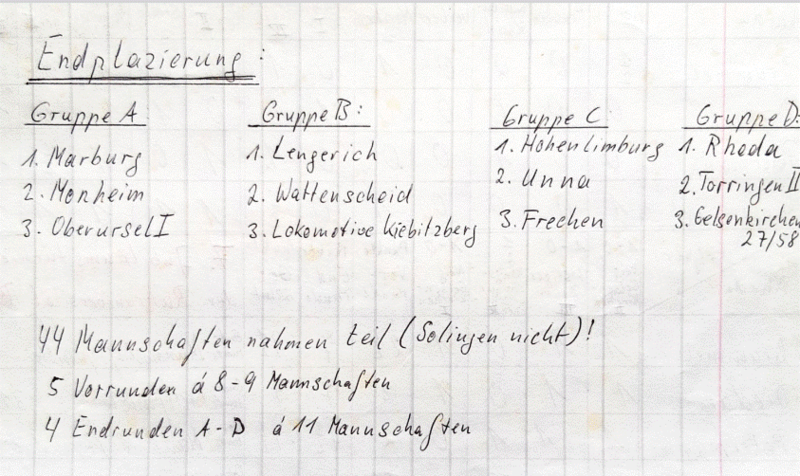 Endplazierung:
Gruppe A
1. Marburg
2. Monheim
3. Oberursel I
Gruppe B:
1. Lengerich
2. Wattenscheid
3. Lokomotive Kiebitzberg
Gruppe C
1. Hohenlimburg
2. Unna
3. Frechen
Gruppe D:
1. Rheda
2. Torringen II
3. Gelsenkirchen
27/58
44 Mannschaften nahmen teil (Solingen nicht)!
5 Vorrunden á 8-9 Mannschaften
4 Endrunden A-D á 11 Mannschaften